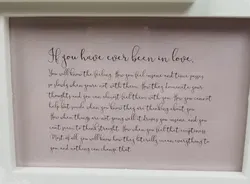 If you have ever been in love,
You will know the feeling. How you feel unsure and time passes
so slowly when you're not with them. How they dominate your
thoughts and you can almost feel them with you. How you cannot
help but smile when you know they are thinking about you.
How when things are not going well it destroys you inside and you
can't seem to think straight. How when you feel that emptiness.
Most of all you will know how they literally mean everything to
you and nothing can change that.